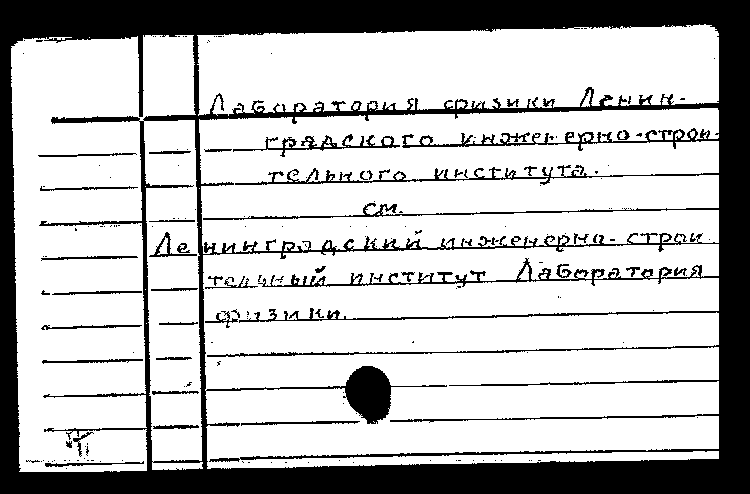 Лаборатория физики Ленин-
градского инженерно-строи-
тельного института.
см.
Ленинградский инженерно-строи
тельный институт Лаборатория
физики.